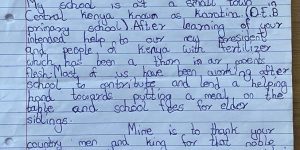 My school is at a small town in
Central Kenya known as Karatina (D.E.B
primary school). After learning of your
intended help to our new president
and people of Kenya with fertilizer
which has been a thorn in our parents
flesh. Most of us have been working after
school to contribute and lend a helping
hand towards putting a meal on the
table and school fees for elder
siblings.
Mine is to thank your
country men and king for that noble